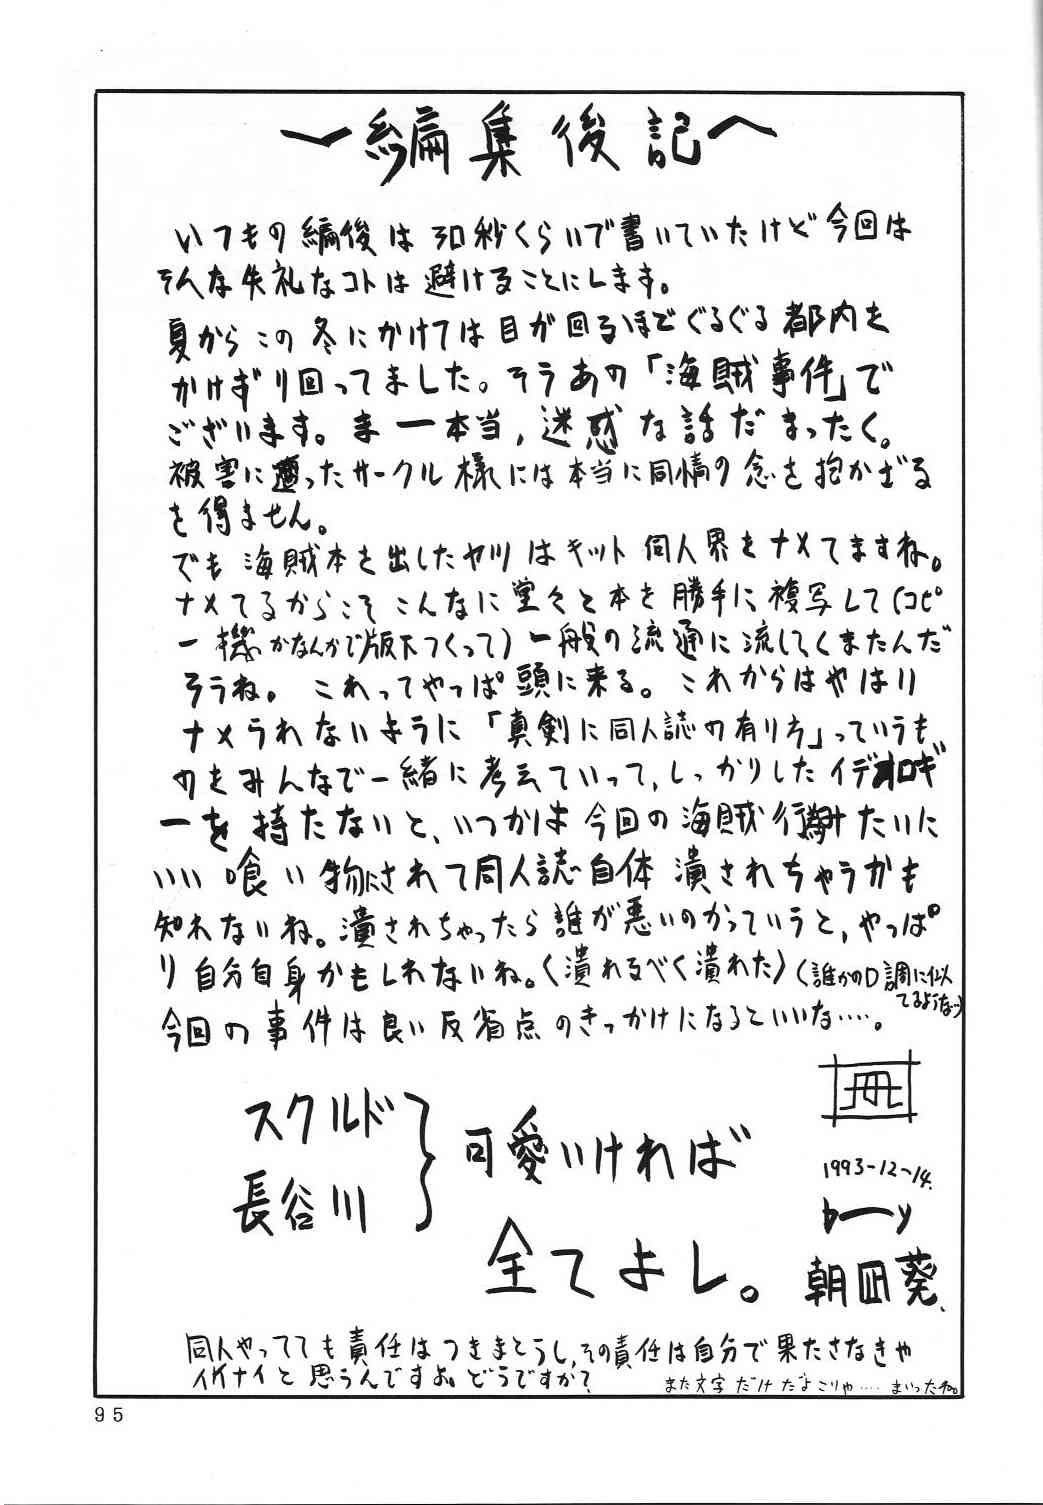 〜編集後記〜
いつもの編後は30秒くらいで書いていたけど今回は
そんな失礼なコトは避けることにします。
夏からこの冬にかけては目が回るほどぐるぐる都内を
かけずり回ってました。そうあの「海賊事件」で
ございます。まー本当,迷惑な話だまったく。
被害に遭ったサークル様には本当に同情の念を抱かざる
を得ません。
でも海賊本を出したヤツはキット同人界をナメてますね。
ナメてるからこそこんなに堂々と本を勝手に複写して(コピ
ー機かなんかで版下つくって)一般の流通に流してくまたんだ
そうね。これってやっぱ頭に来る。これからはやはり
ナメられないように「真剣に同人誌の有り方」っていうも
のをみんなで一緒に考えていって,しっかりしたイデオロギ
ーを持たないと、いつかは今回の海賊行為みたいに
いい喰い物にされて同人誌自体潰されちゃうかも
知れないね。潰されちゃったら誰が悪いのかっていうと,やっぱ
り自分自身かもしれないね。〈潰れるべく潰れた〉(誰かの口調に似
てるような…)
今回の事件は良い反省点のきっかけになるといいな….。
スクルド
長谷川
可愛いければ
全てよし。
1993-12-14.
朝凪葵.
同人やってても責任はつきまとうし,その責任は自分で果たさなきゃ
イケナイと思うんですよ。どうですか?
また文字だけだよこりゃ….. まいったね。
95